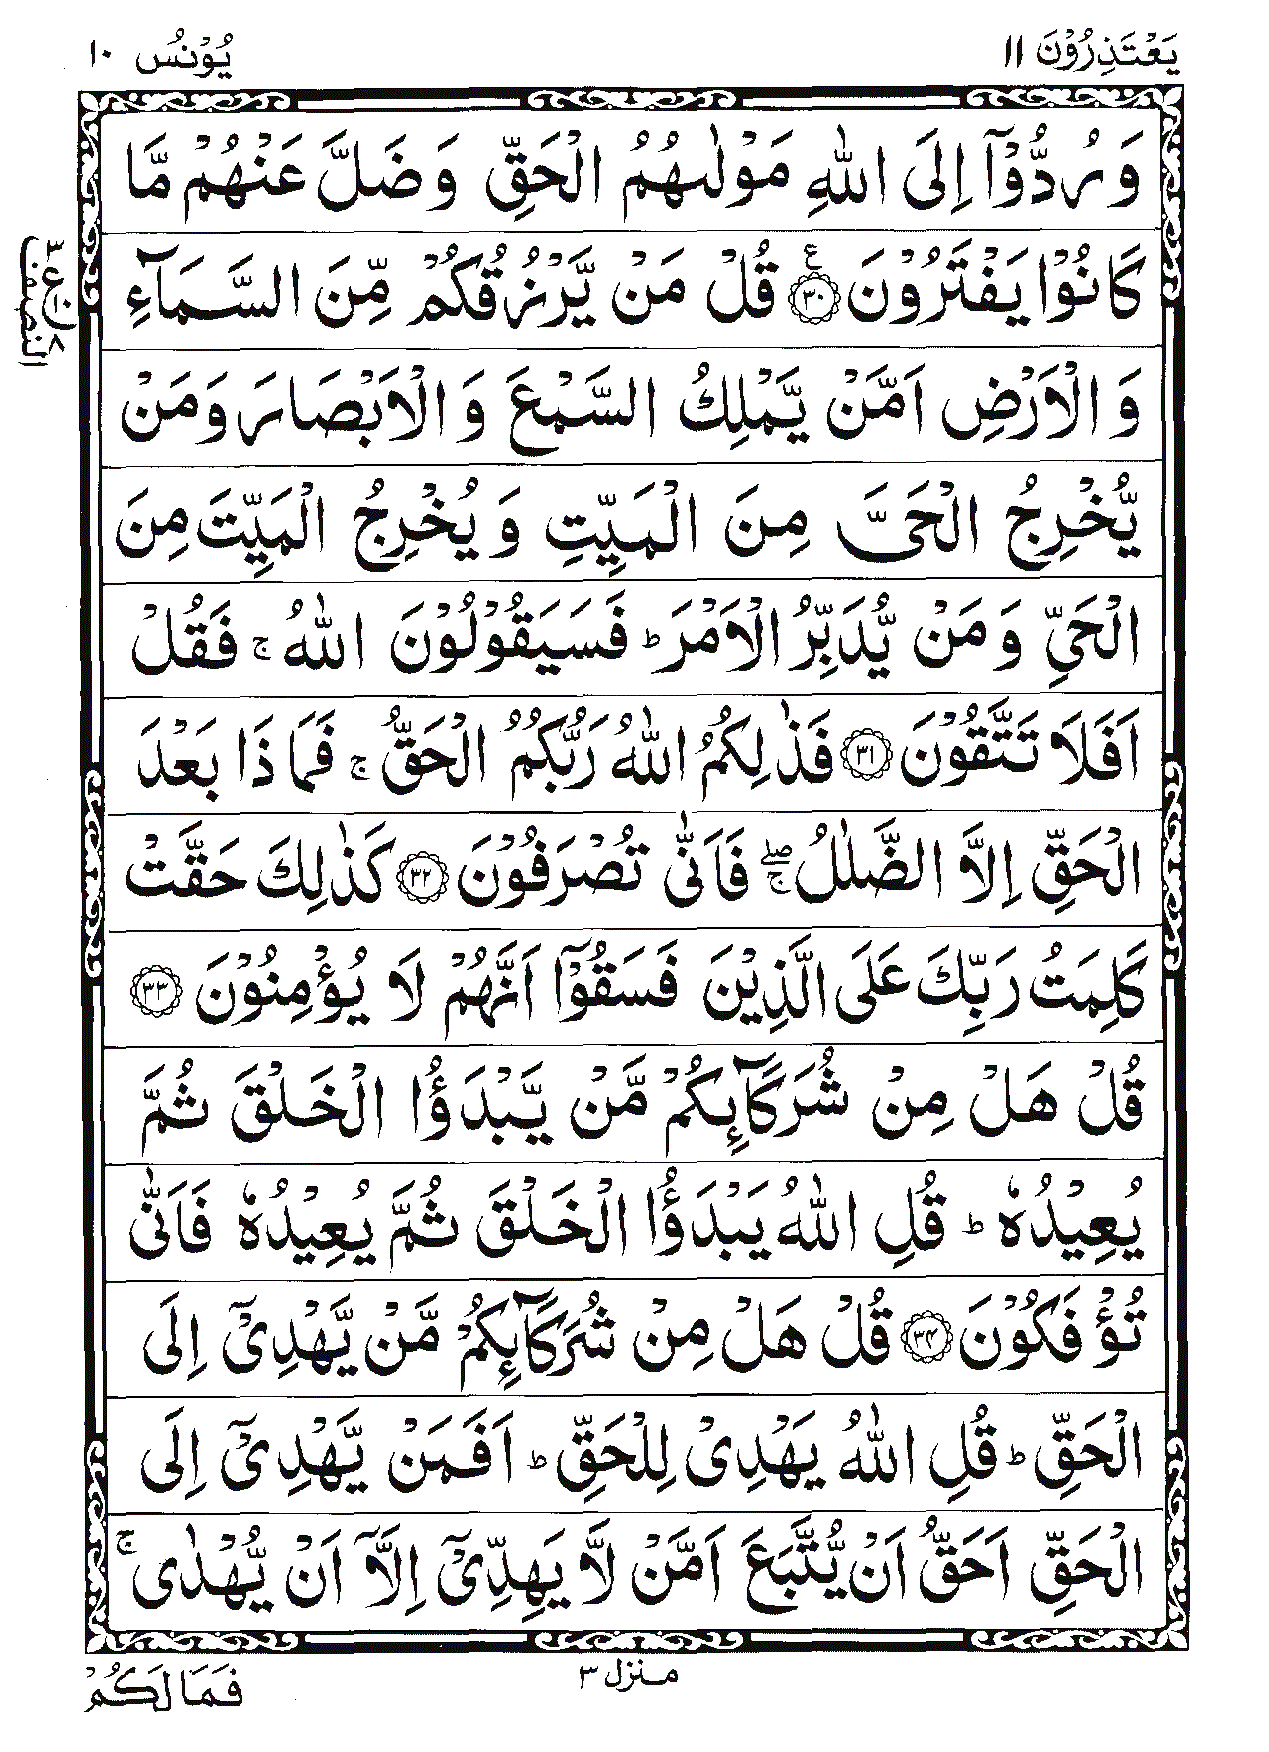 يَعْتَذِرُوْنَ ۱۱
يُوْنُسُ ۱۰
وَرُدُّوْۤا اِلَى اللّٰهِ مَوْلٰىهُمُ الْحَقِّ وَضَلَّ عَنْهُمْ مَّا
كَانُوْا يَفْتَرُوْنَ ۧ ﴿۳۰﴾ قُلْ مَنْ يَّرْزُقُكُمْ مِّنَ السَّمَآءِ
وَالْاَرْضِ اَمَّنْ يَّمْلِكُ السَّمْعَ وَالْاَبْصَارَ وَمَنْ
يُّخْرِجُ الْحَىَّ مِنَ الْمَيِّتِ وَيُخْرِجُ الْمَيِّتَ مِنَ
الْحَيِّ وَمَنْ يُّدَبِّرُ الْاَمْرَ ؕ فَسَيَقُوْلُوْنَ اللّٰهُ ۚ فَقُلْ
اَفَلَا تَتَّقُوْنَ ﴿۳۱﴾ فَذٰلِكُمُ اللّٰهُ رَبُّكُمُ الْحَقُّ ۚ فَمَا ذَا بَعْدَ
الْحَقِّ اِلَّا الضَّلٰلُ ۖۚ فَاَنّٰى تُصْرَفُوْنَ ﴿۳۲﴾ كَذٰلِكَ حَقَّتْ
كَلِمَتُ رَبِّكَ عَلَى الَّذِيْنَ فَسَقُوْۤا اَنَّهُمْ لَا يُؤْمِنُوْنَ ﴿۳۳﴾
قُلْ هَلْ مِنْ شُرَكَآئِكُمْ مَّنْ يَّبْدَؤُا الْخَلْقَ ثُمَّ
يُعِيْدُهٗ ؕ قُلِ اللّٰهُ يَبْدَؤُا الْخَلْقَ ثُمَّ يُعِيْدُهٗ فَاَنّٰى
تُؤْفَكُوْنَ ﴿۳۴﴾ قُلْ هَلْ مِنْ شُرَكَآئِكُمْ مَّنْ يَّهْدِىْۤ اِلَى
الْحَقِّ ؕ قُلِ اللّٰهُ يَهْدِىْ لِلْحَقِّ ؕ اَفَمَنْ يَّهْدِىْۤ اِلَى
الْحَقِّ اَحَقُّ اَنْ يُّتَّبَعَ اَمَّنْ لَّا يَهِدِّىْۤ اِلَّاۤ اَنْ يُّهْدٰى ۚ
منزل ۳
فَمَا لَكُمْ